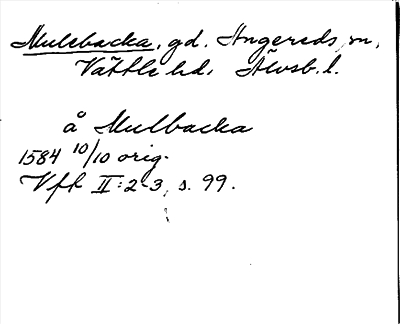 Mulebacka, gd. Angereds sn,
Vättle hd. Älvsb. l.
å Mulbacka
1584 10/10 orig.
Vft II: 2-3, s. 99.